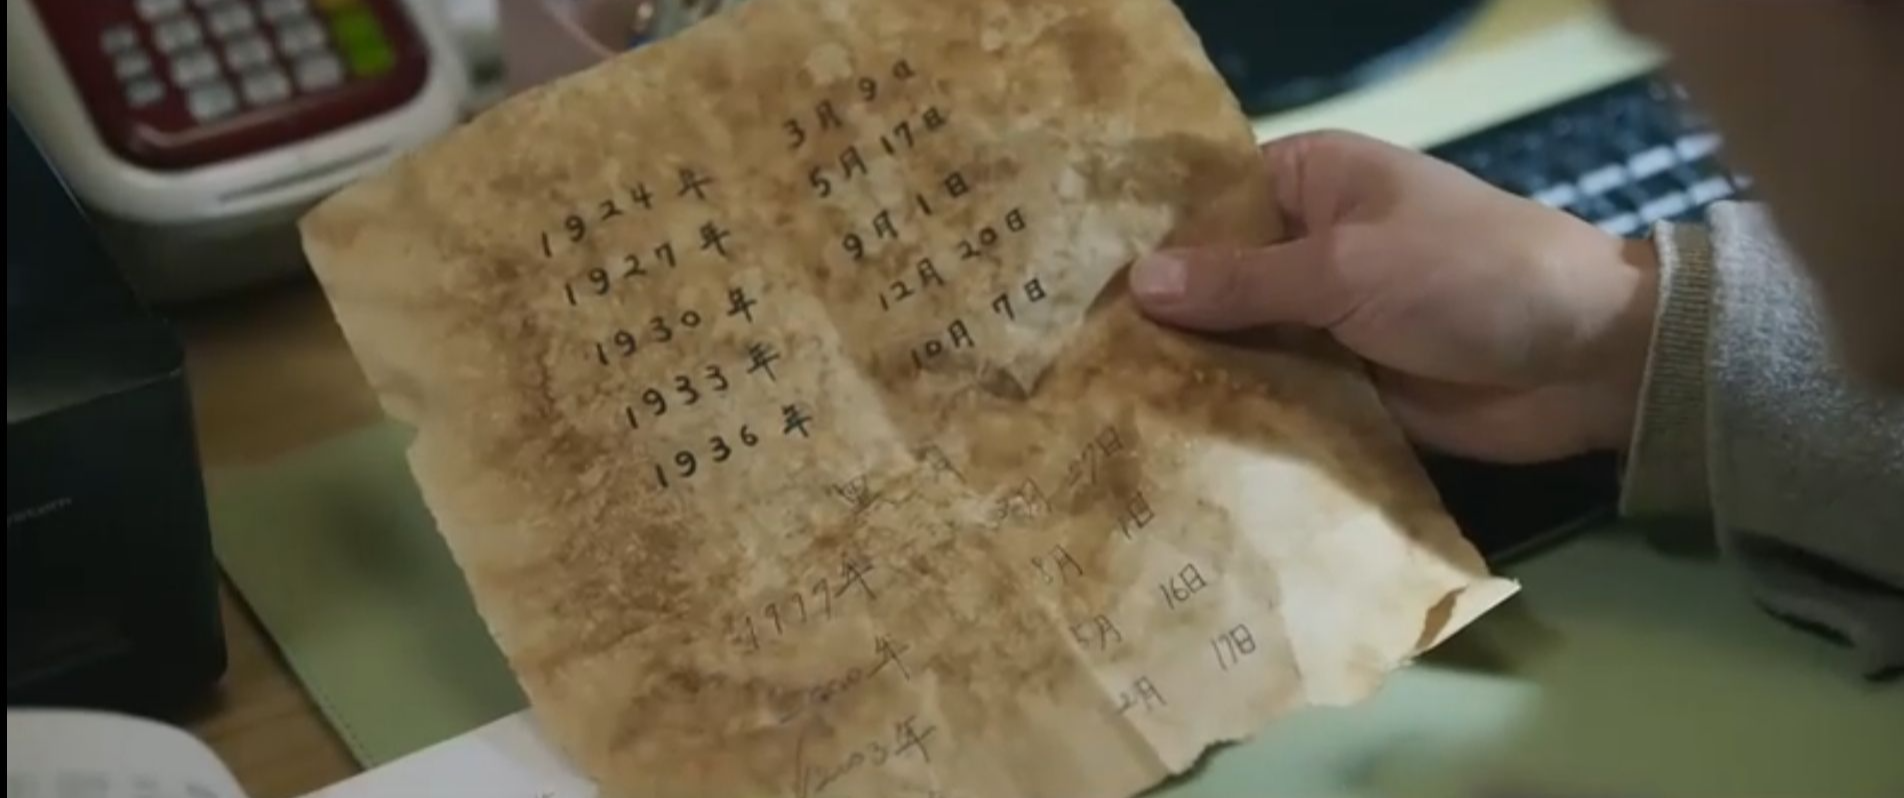 1924年 3月9日
1927年 5月17日
1930年 9月1日
1933年 12月20日
1936年 10月7日
月 27日
1997年 8月 1日
2000年 5月 16日
2003年 2月 17日